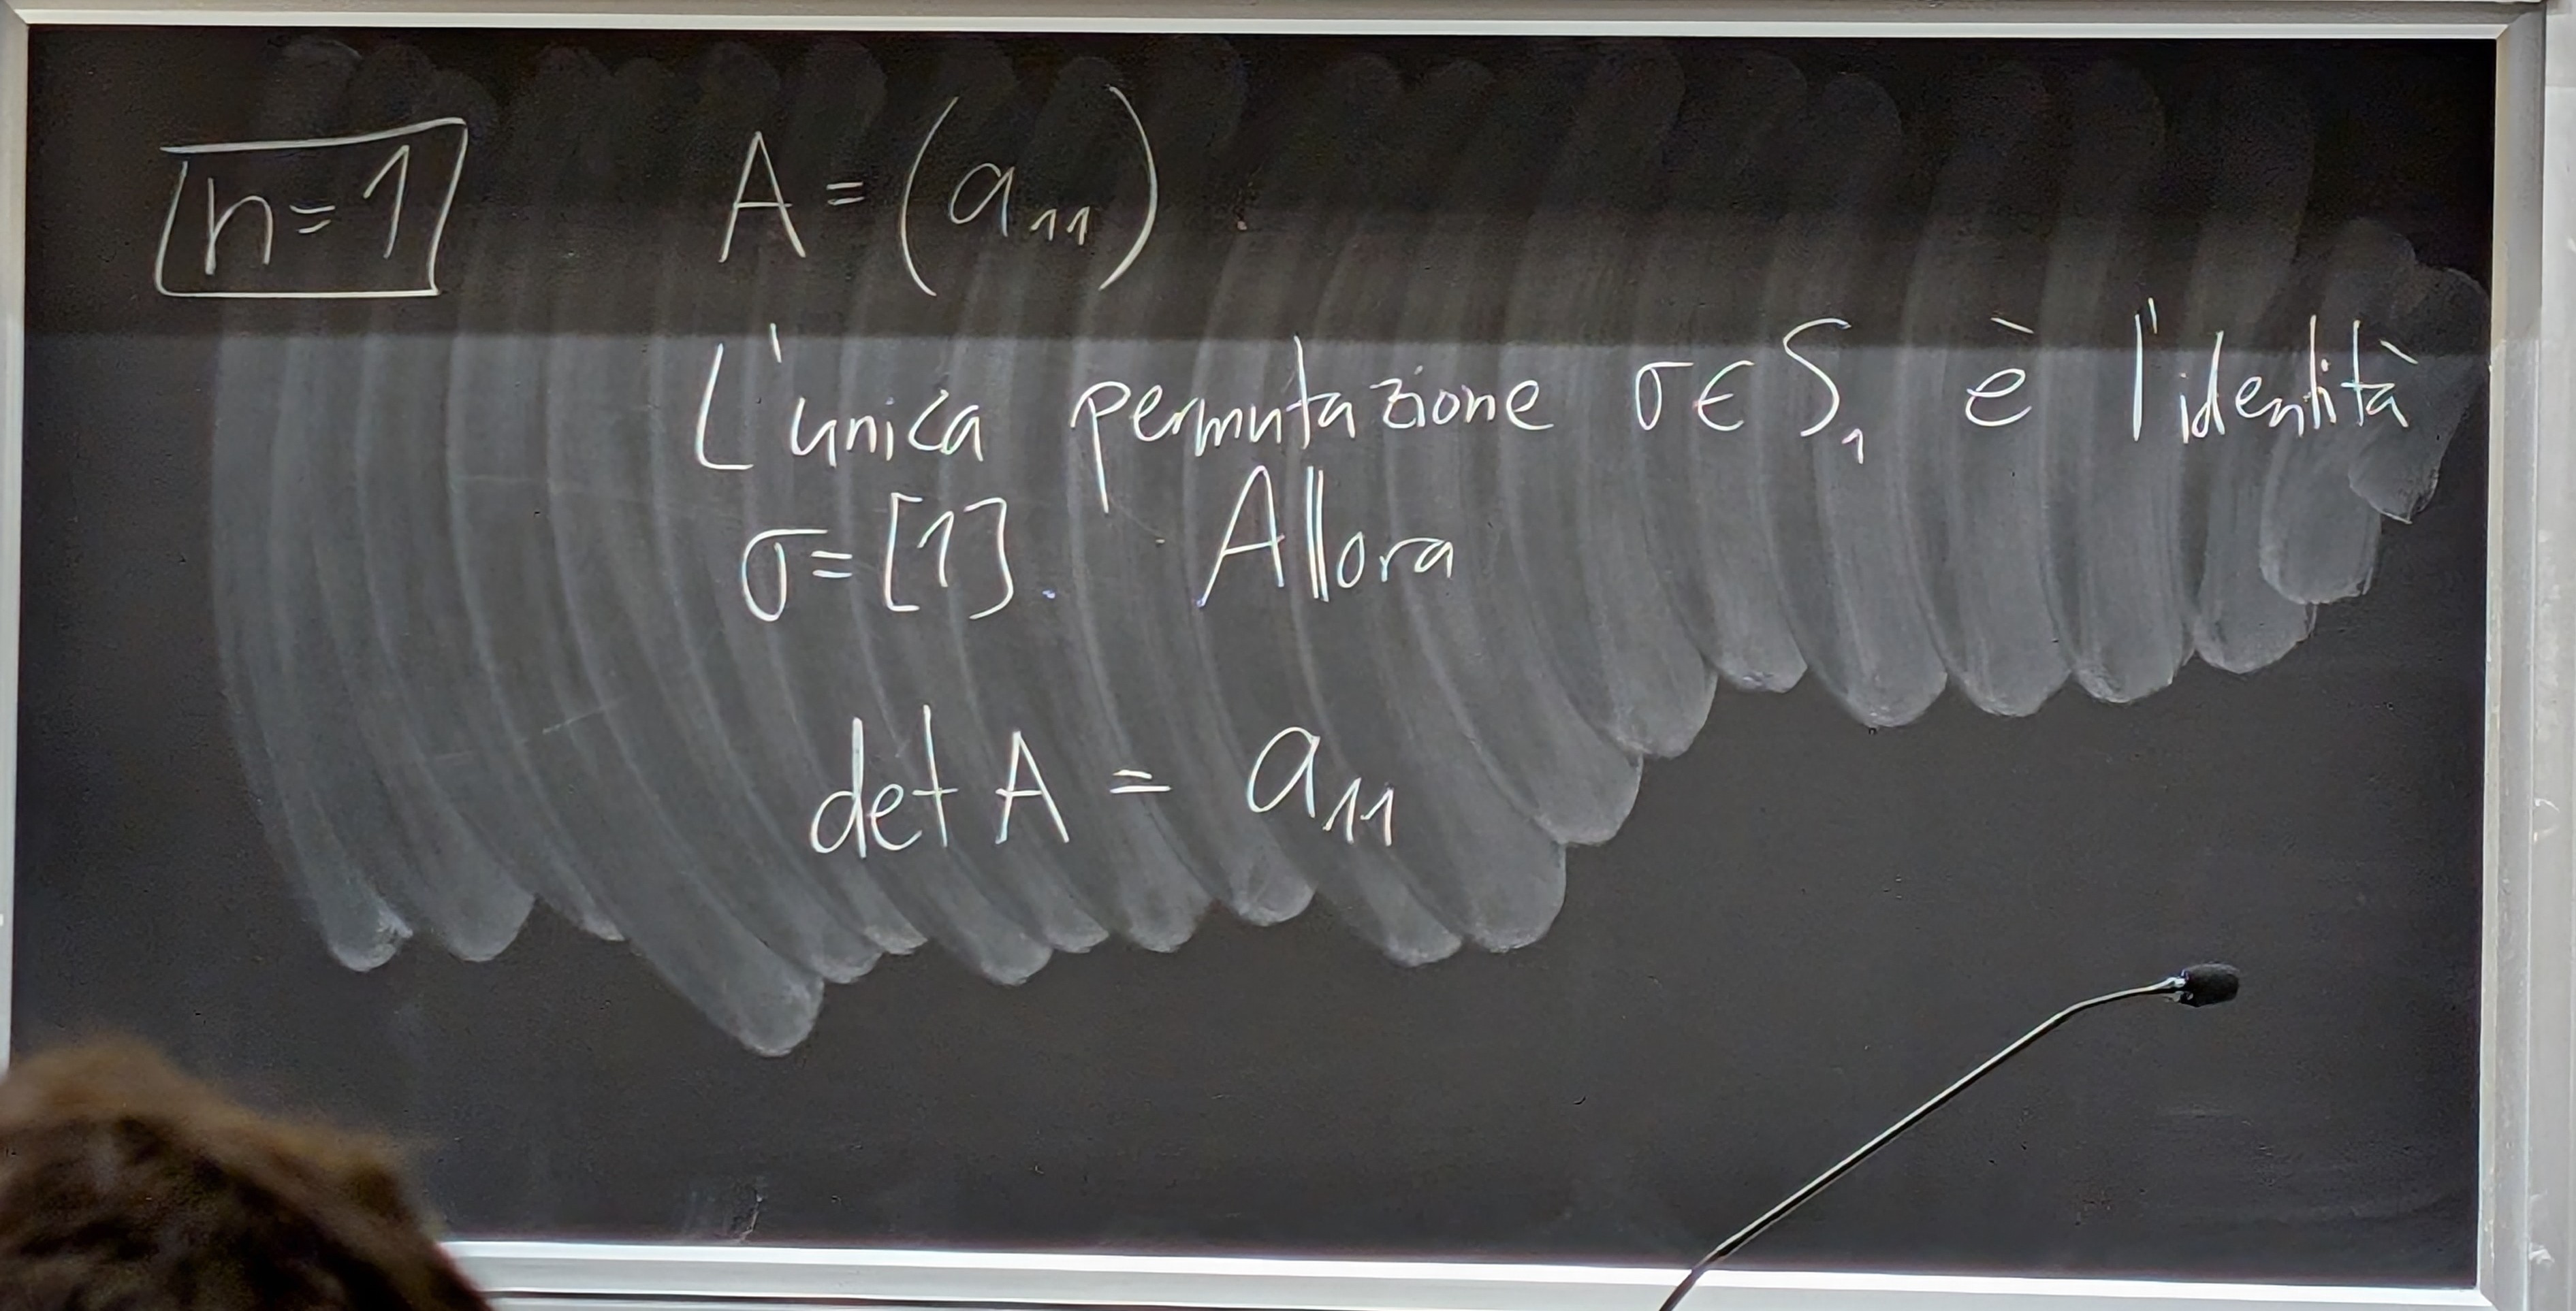 n=1 A = (a₁₁)
L'unica permutazione σ∈S₁ è l'identità
σ=[1]. Allora
det A = a₁₁